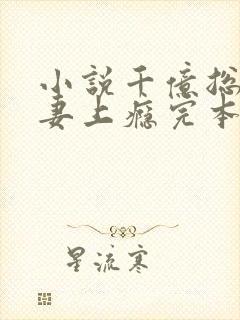 小說千億
妻上瘾完本
星流寒